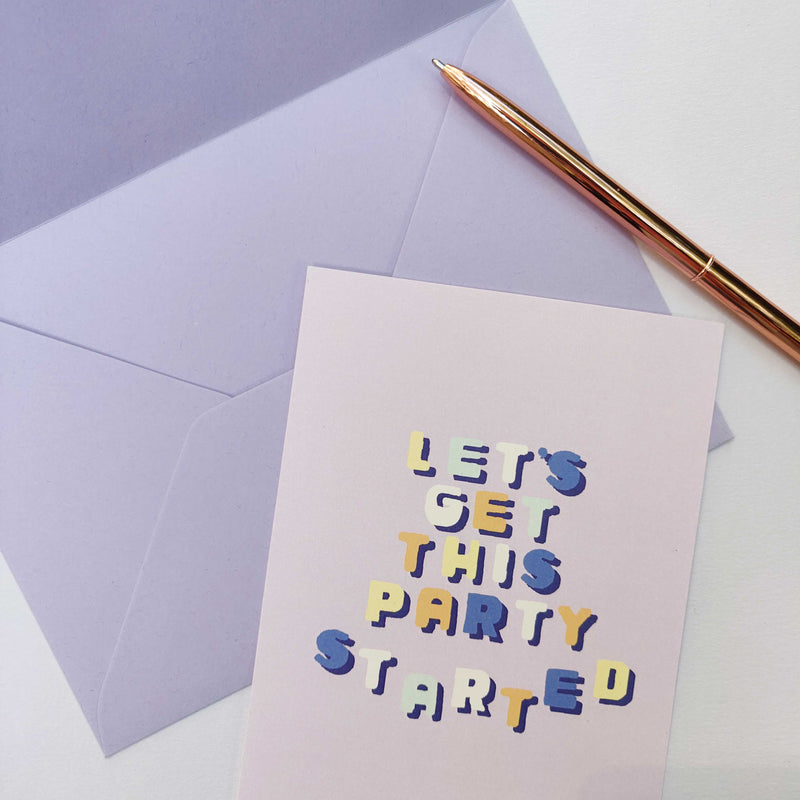 LET'S
GET
THIS
PARTY
STARTED